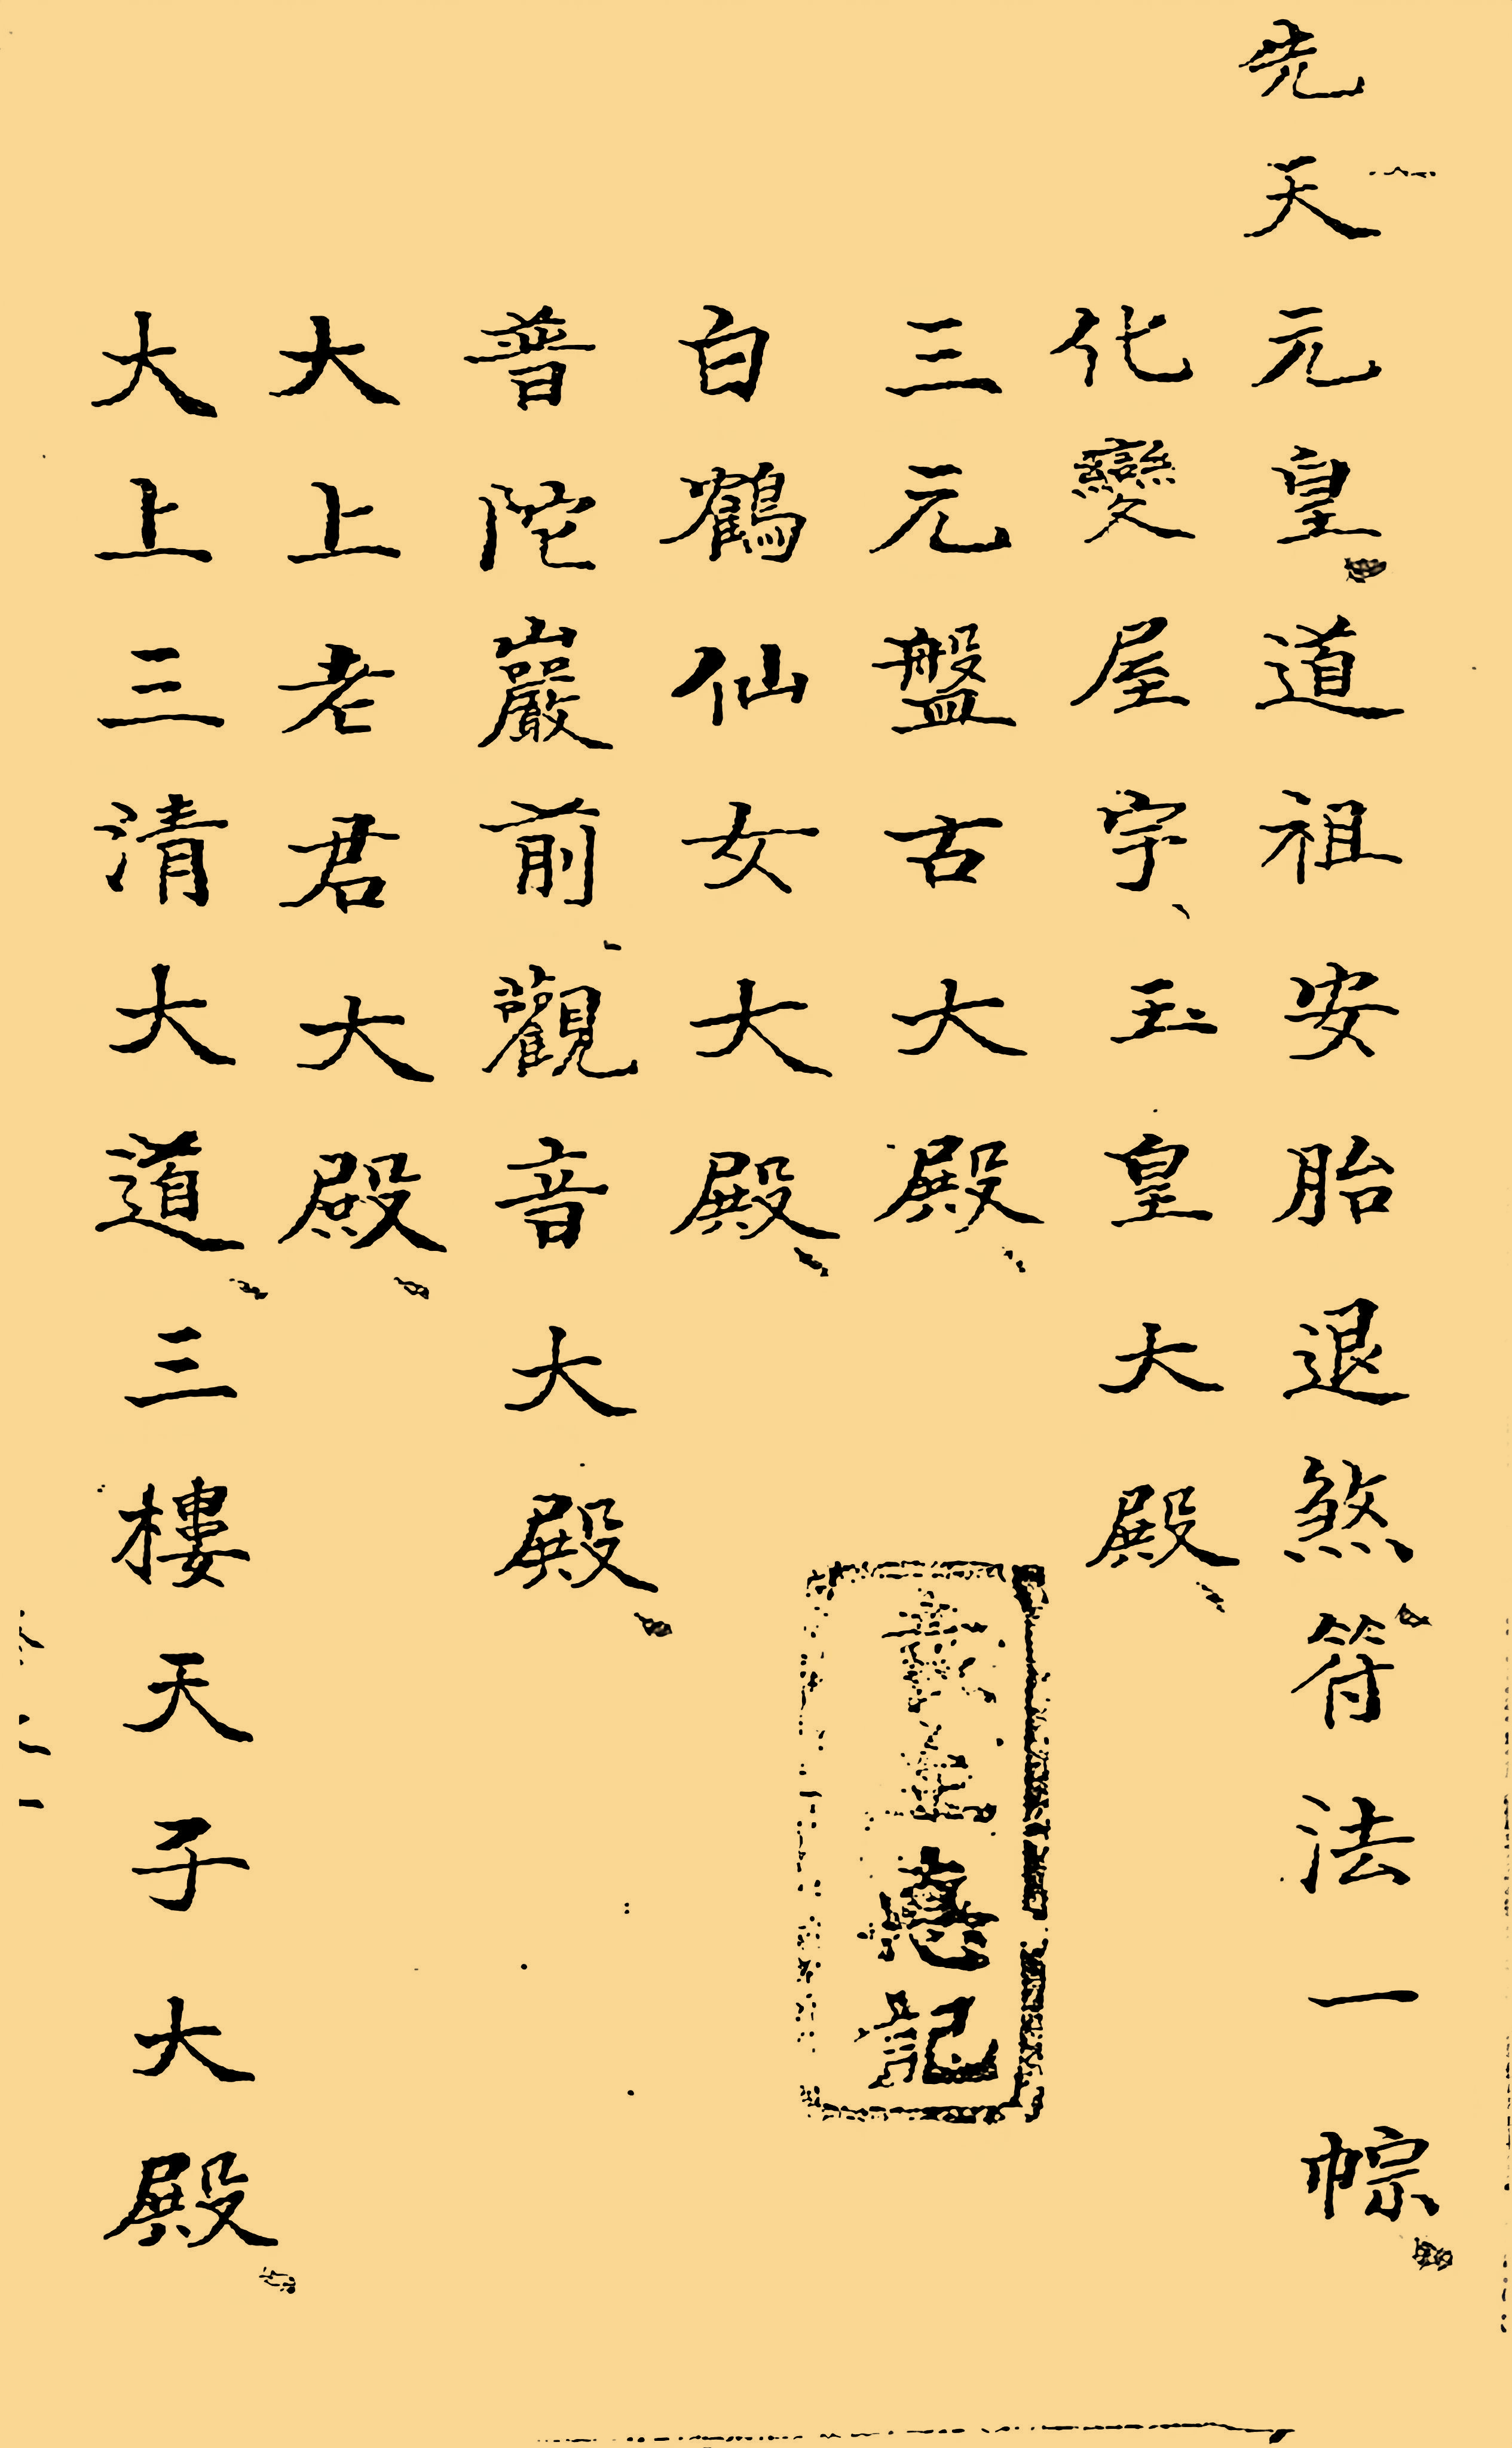 先天元皇道祖安胎退煞符法一幁
化變屋宇玉皇大殿
三元盤古大殿
白鶴仙女大殿
普陀巖前觀音大殿
大上老君大殿
大上三清大道三樓天子大殿
記